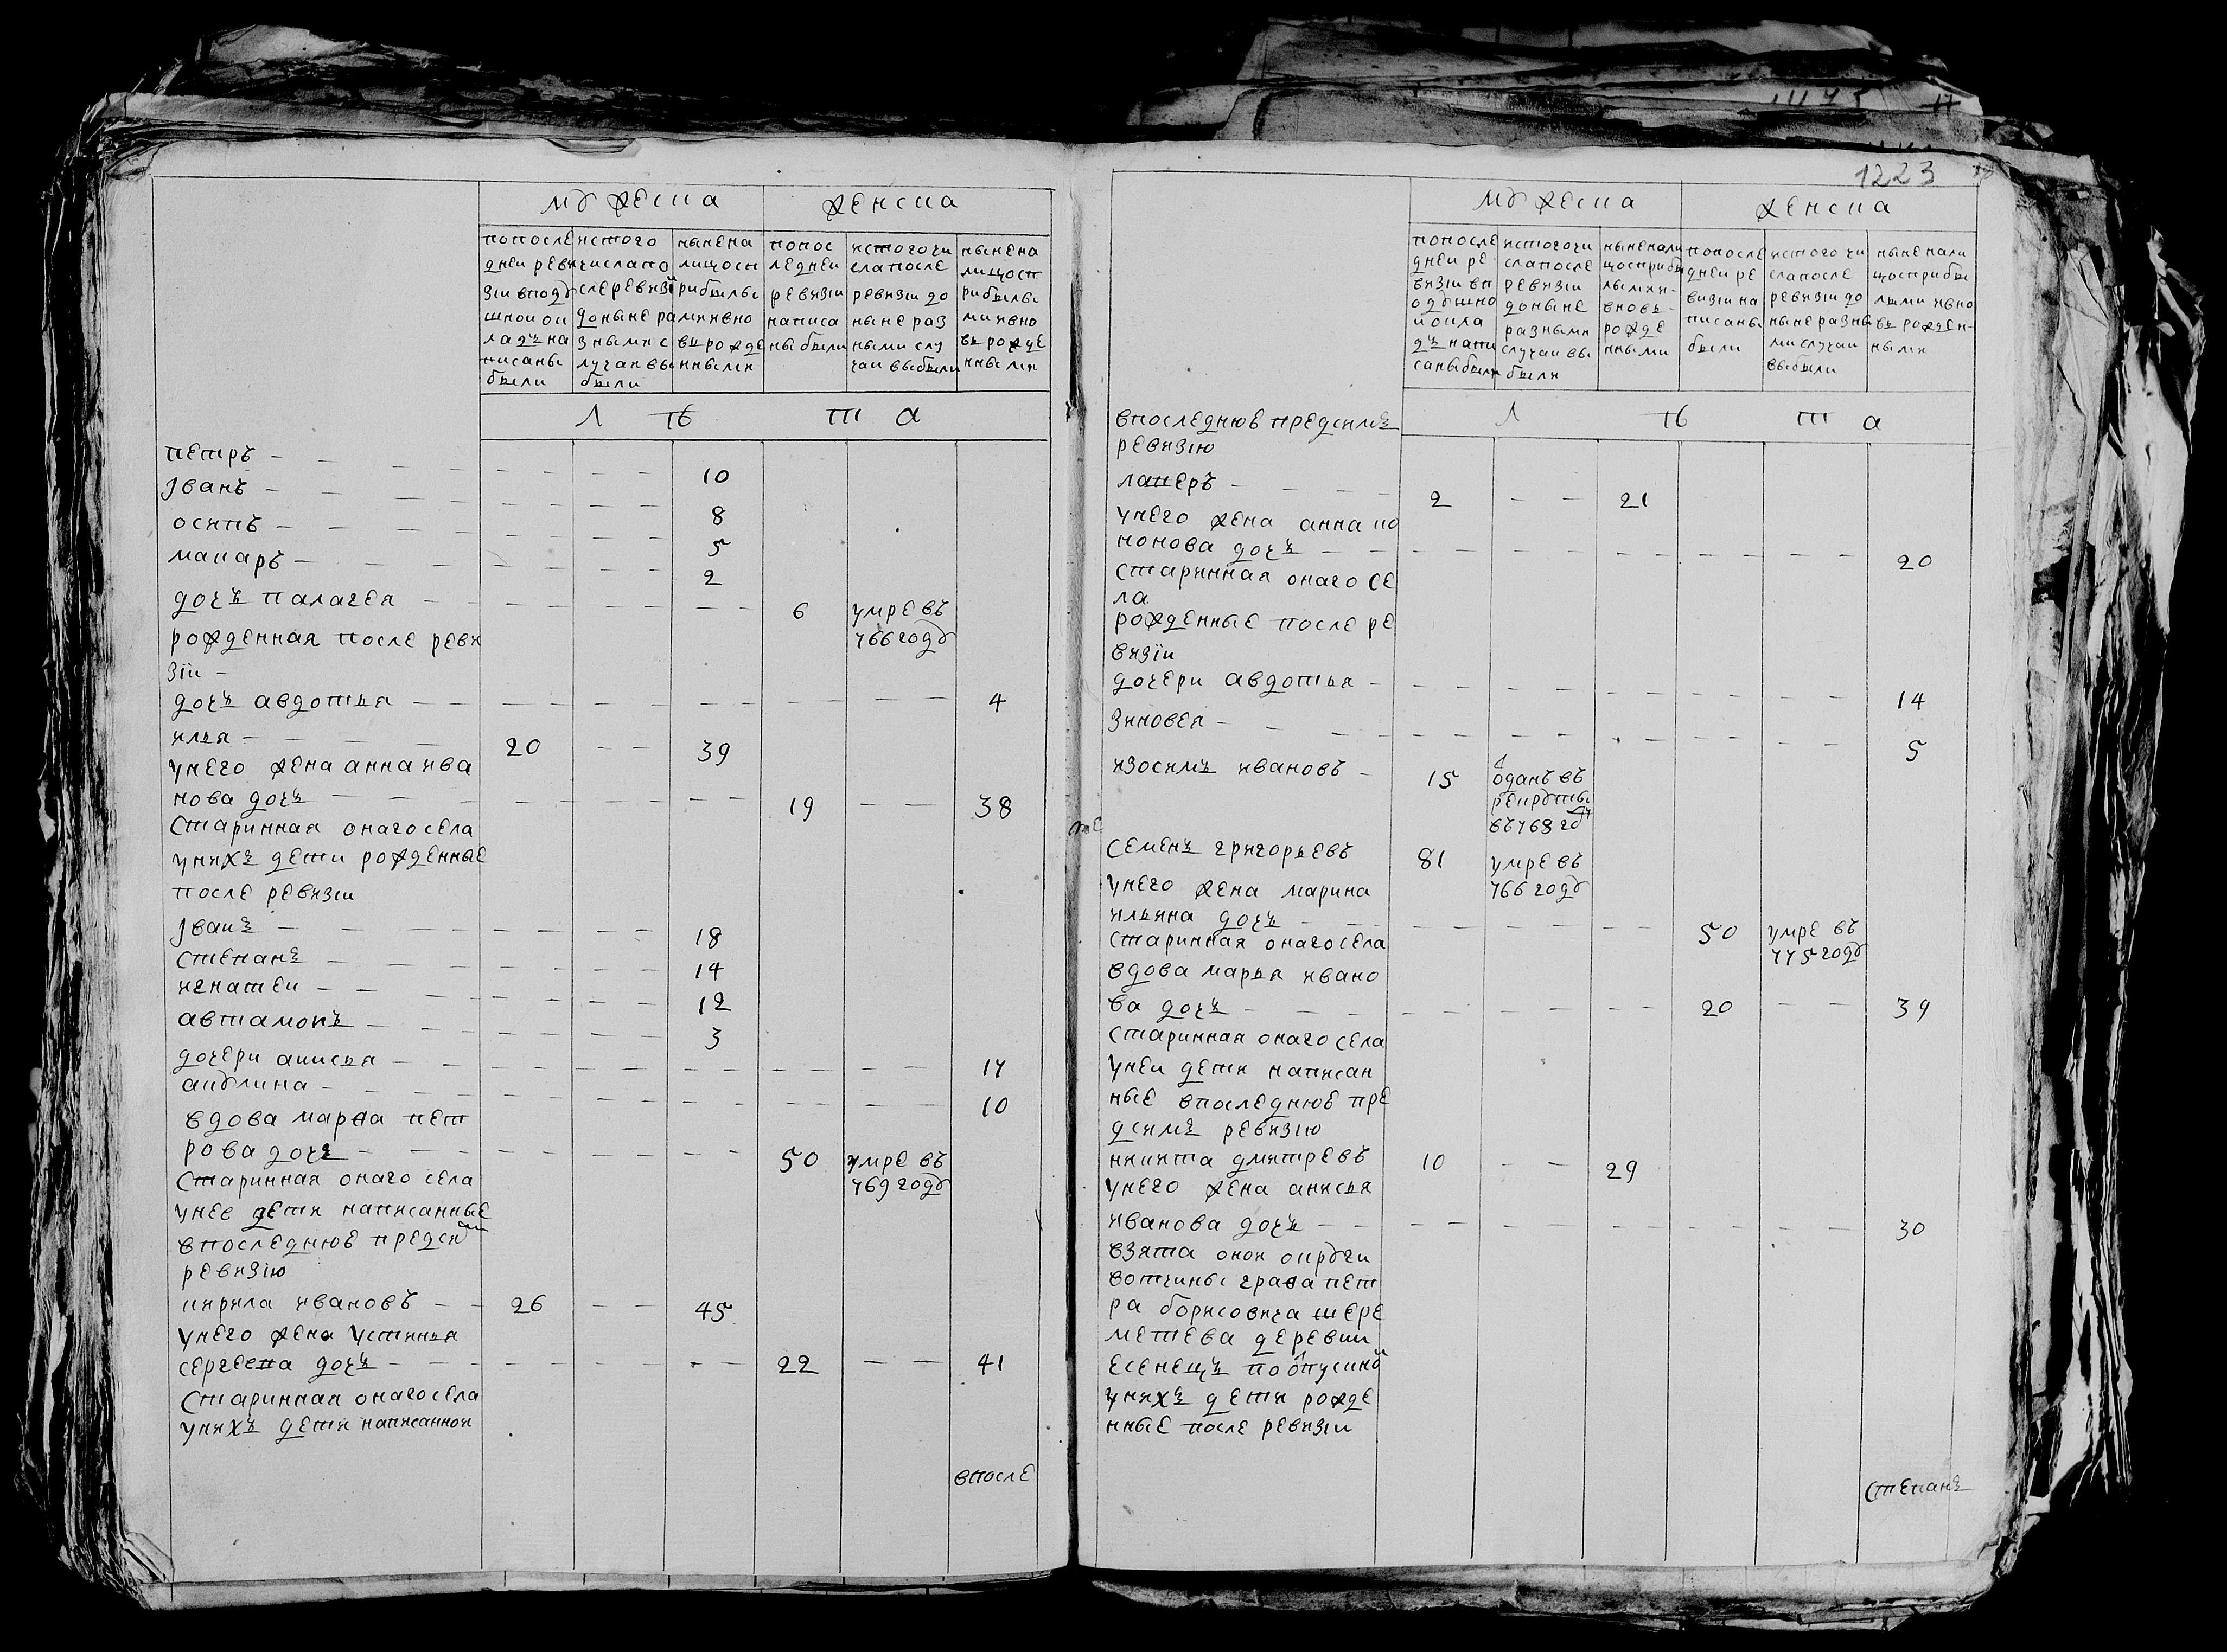 мужеска женска
попоследнеи ревизіи вподушнои окладъ написаны были
истого числа послеревизіи доныне разными случаи выбыли
ныне налицо сприбылыми ивновь рожденными
попоследнеи ревизіи написаны были
истого числа после ревизіи доныне разными случаи выбыли
ныне налицо сприбылыми ивновь рожденными
Л ѣ т а
петръ — 10
Јванъ — 8
осипъ — 5
макаръ — 2
дочь палагея — 6 умре въ
766 году
рожденная после реви
зіи
дочь авдотья — 4
илья — 20 — 39
унего жена анна ива
нова дочь — 19 — 38
старинная онагосела
унихъ дети рожденные
после ревизіи
Јванъ — 18
степанъ — 14
игнатеи — 12
автамонъ — 3
дочери анисья — 17
акулина — 10
вдова марѳа пет
рова дочь — 50 умре въ
769 году
старинная онаго села
унее дети написанные
впоследнюю предси
ревизію
кирила ивановъ — 26 — 45
унего жена устинья
сергеева дочь — 22 — 41
старинная онагосела
унихъ дети написаннои
впосле
1223
мужеска женска
попоследнеи ревизіи вподушнои окладъ написаны были
истого числа после ревизіи доныне разными случаи выбыли
ныне налицо сприбылыми ивновь рожденными
попоследнеи ревизіи написаны были
истого числа после ревизіи доныне разными случаи выбыли
ныне налицо сприбылыми ивновь рожденными
Л ѣ т а
впоследнюю предсимъ
ревизію
лаперъ — 2 — 21
унего жена анна но
нонова дочь — 20
старинная онаго се
ла
рожденные после ре
визіи
дочери авдотья — 14
зиновея — 5
изосимъ ивановъ — 15 оданъ въ
рекруты
въ768 гду
семенъ григорьевъ 81 умре въ
766 году
унего жена марина
ильина дочь — 50 умре въ
775 году
старинная онагосела
вдова марья ивано
ва дочь — 20 — 39
старинная онагосела
унеи дети написан
ные впоследнюю пре
дсимъ ревизію
никита дмитревъ 10 — 29
унего жена анисья
иванова дочь — 30
взята онои округи
вотчины граѳа пет
ра борисовича шере
метева деревни
есенецъ поотпускнои
унихъ дети рожде
нные после ревизіи
степанъ